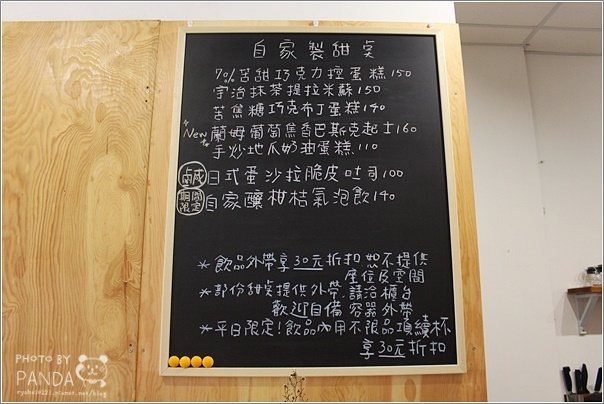 自家製甜桌
70%苦甜巧克力控蛋糕150
宇治抹茶提拉米蘇150
苦焦糖巧克布丁蛋糕140
New 蘭姆葡萄焦香巴斯克起士160
手炒地瓜奶油蛋糕.110
鹹 日式蛋沙拉脆皮吐司100
期間限定 自家釀柑桔氣泡飲140
*飲品外帶享30元折扣,恕不提供
座位及空間
*部份甜桌提供外帶,請洽櫃台
歡迎自備容器外帶
*平日限定!飲品內用不限品項續杯
享30元折扣
PHOTO BY
PANDA